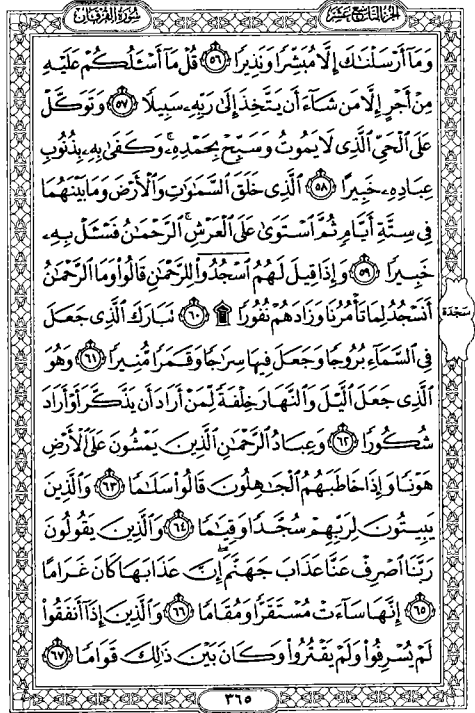 الجزء التاسع عشر
سورة الفرقان
وَمَآ أَرْسَلْنَٰكَ إِلَّا مُبَشِّرًا وَنَذِيرًا ٥٦ قُلْ مَآ أَسْـَٔلُكُمْ عَلَيْهِ
مِنْ أَجْرٍ إِلَّا مَن شَآءَ أَن يَتَّخِذَ إِلَىٰ رَبِّهِۦ سَبِيلًا ٥٧ وَتَوَكَّلْ
عَلَى ٱلْحَىِّ ٱلَّذِى لَا يَمُوتُ وَسَبِّحْ بِحَمْدِهِۦ ۚ وَكَفَىٰ بِهِۦ بِذُنُوبِ
عِبَادِهِۦ خَبِيرًا ٥٨ ٱلَّذِى خَلَقَ ٱلسَّمَٰوَٰتِ وَٱلْأَرْضَ وَمَا بَيْنَهُمَا
فِى سِتَّةِ أَيَّامٍ ثُمَّ ٱسْتَوَىٰ عَلَى ٱلْعَرْشِ ۚ ٱلرَّحْمَٰنُ فَسْـَٔلْ بِهِۦ
خَبِيرًا ٥٩ وَإِذَا قِيلَ لَهُمُ ٱسْجُدُوا۟ لِلرَّحْمَٰنِ قَالُوا۟ وَمَا ٱلرَّحْمَٰنُ
أَنَسْجُدُ لِمَا تَأْمُرُنَا وَزَادَهُمْ نُفُورًا ۩ ٦٠ تَبَارَكَ ٱلَّذِى جَعَلَ
سَجْدَة
فِى ٱلسَّمَآءِ بُرُوجًا وَجَعَلَ فِيهَا سِرَٰجًا وَقَمَرًا مُّنِيرًا ٦١ وَهُوَ
ٱلَّذِى جَعَلَ ٱلَّيْلَ وَٱلنَّهَارَ خِلْفَةً لِّمَنْ أَرَادَ أَن يَذَّكَّرَ أَوْ أَرَادَ
شُكُورًا ٦٢ وَعِبَادُ ٱلرَّحْمَٰنِ ٱلَّذِينَ يَمْشُونَ عَلَى ٱلْأَرْضِ
هَوْنًا وَإِذَا خَاطَبَهُمُ ٱلْجَٰهِلُونَ قَالُوا۟ سَلَٰمًا ٦٣ وَٱلَّذِينَ
يَبِيتُونَ لِرَبِّهِمْ سُجَّدًا وَقِيَٰمًا ٦٤ وَٱلَّذِينَ يَقُولُونَ
رَبَّنَا ٱصْرِفْ عَنَّا عَذَابَ جَهَنَّمَ ۖ إِنَّ عَذَابَهَا كَانَ غَرَامًا
٦٥ إِنَّهَا سَآءَتْ مُسْتَقَرًّا وَمُقَامًا ٦٦ وَٱلَّذِينَ إِذَآ أَنفَقُوا۟
لَمْ يُسْرِفُوا۟ وَلَمْ يَقْتُرُوا۟ وَكَانَ بَيْنَ ذَٰلِكَ قَوَامًا ٦٧
٣٦٥